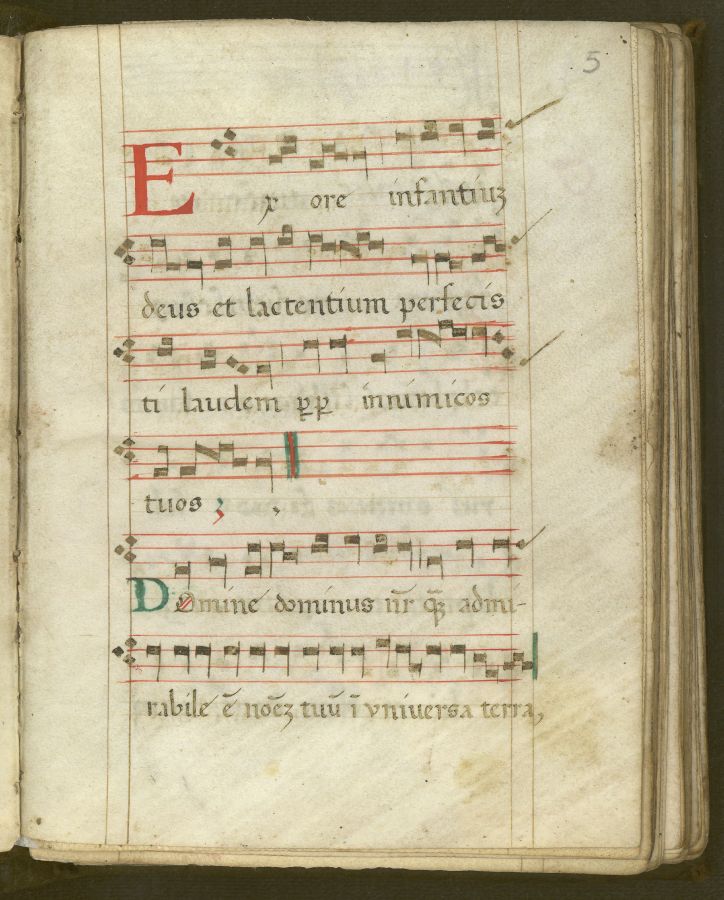 5
Ex ore infantiuʒ
deus et lactentium perfecis
ti laudem ꝓp̱ innimicos
tuos ;
Domine dominus nr̄ qʒ̄ admi-
rabile ē noēʒ tuū ī vniuersa terra,